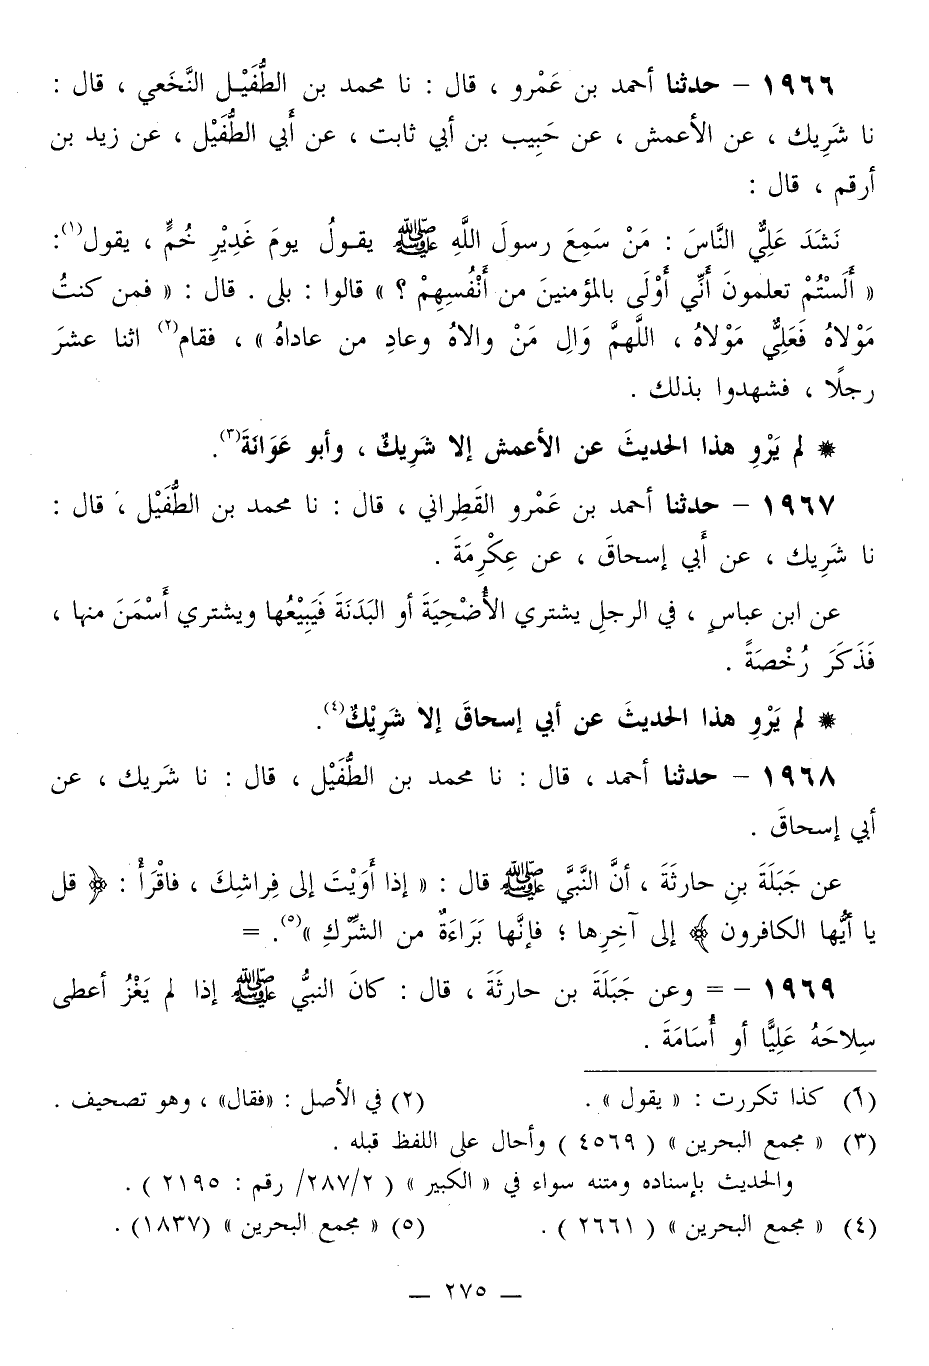 ١٩٦٦ – حدثنا أحمد بن عَمْرو ، قال : نا محمد بن الطُّفَيْـل النَّخَعي ، قال :
نا شَرِيك ، عن الأعمش ، عن حَبِيب بن أبي ثابت ، عن أَبي الطُّفَيْل ، عن زيد بن
أرقم ، قال :
نَشَدَ عَلِيٌّ النَّاسَ : مَنْ سَمِعَ رسولَ اللَّهِ ﷺ يقـولُ يومَ غَدِيْرِ خُمٍّ ، يقول(١):
« أَلَسْتُمْ تعلمونَ أَنِّي أَوْلَى بالمؤمنينَ من أَنْفُسِهِمْ ؟ » قالوا : بلى . قال : « فمن كنتُ
مَوْلاهُ فَعَلِيٌّ مَوْلاهُ ، اللَّهمَّ وَالِ مَنْ والاهُ وعادِ من عاداهُ » ، فقام(٢) اثنا عشرَ
رجلًا ، فشهدوا بذلك .
* لم يَرْوِ هذا الحديثَ عن الأعمش إلا شَرِيكٌ ، وأبو عَوَانَةَ(٣).
١٩٦٧ – حدثنا أحمد بن عَمْرو القَطِراني ، قال : نا محمد بن الطُّفَيْل ، قال :
نا شَرِيك ، عن أَبي إسحاقَ ، عن عِكْرِمَةَ .
عن ابن عباسٍ ، في الرجلِ يشتري الأُضْحِيَةَ أو البَدَنَةَ فَيَبِيْعُها ويشتري أَسْمَنَ منها ،
فَذَكَرَ رُخْصَةً .
* لم يَرْوِ هذا الحديثَ عن أبي إسحاقَ إلا شَرِيْكٌ(٤).
١٩٦٨ – حدثنا أحمد ، قال : نا محمد بن الطُّفَيْل ، قال : نا شَريك ، عن
أبي إسحاقَ .
عن جَبَلَةَ بنِ حارثَةَ ، أنَّ النَّبيَّ ﷺ قال : « إذا أَوَيْتَ إلى فِراشِكَ ، فاقْرَأْ : ﴿ قل
يا أَيُّها الكافرون ﴾ إلى آخِرِها ؛ فإنَّها بَرَاءَةٌ من الشِّرْكِ »(٥). =
١٩٦٩ – = وعن جَبَلَةَ بن حارثَةَ ، قال : كانَ النبيُّ ﷺ إذا لم يَغْزُ أعطى
سِلاحَهُ عَلِيًّا أو أُسَامَةَ .
(٦) كذا تكررت : « يقول » .
(٢) في الأصل : «فقال» ، وهو تصحيف .
(٣) « مجمع البحرين » ( ٤٥٦٩ ) وأحال على اللفظ قبله .
والحديث بإسناده ومتنه سواء في « الكبير » ( ٢٨٧/٢/ رقم : ٢١٩٥ ) .
(٤) « مجمع البحرين » ( ٢٦٦١ ) .
(٥) « مجمع البحرين » (١٨٣٧) .
— ٢٧٥ —